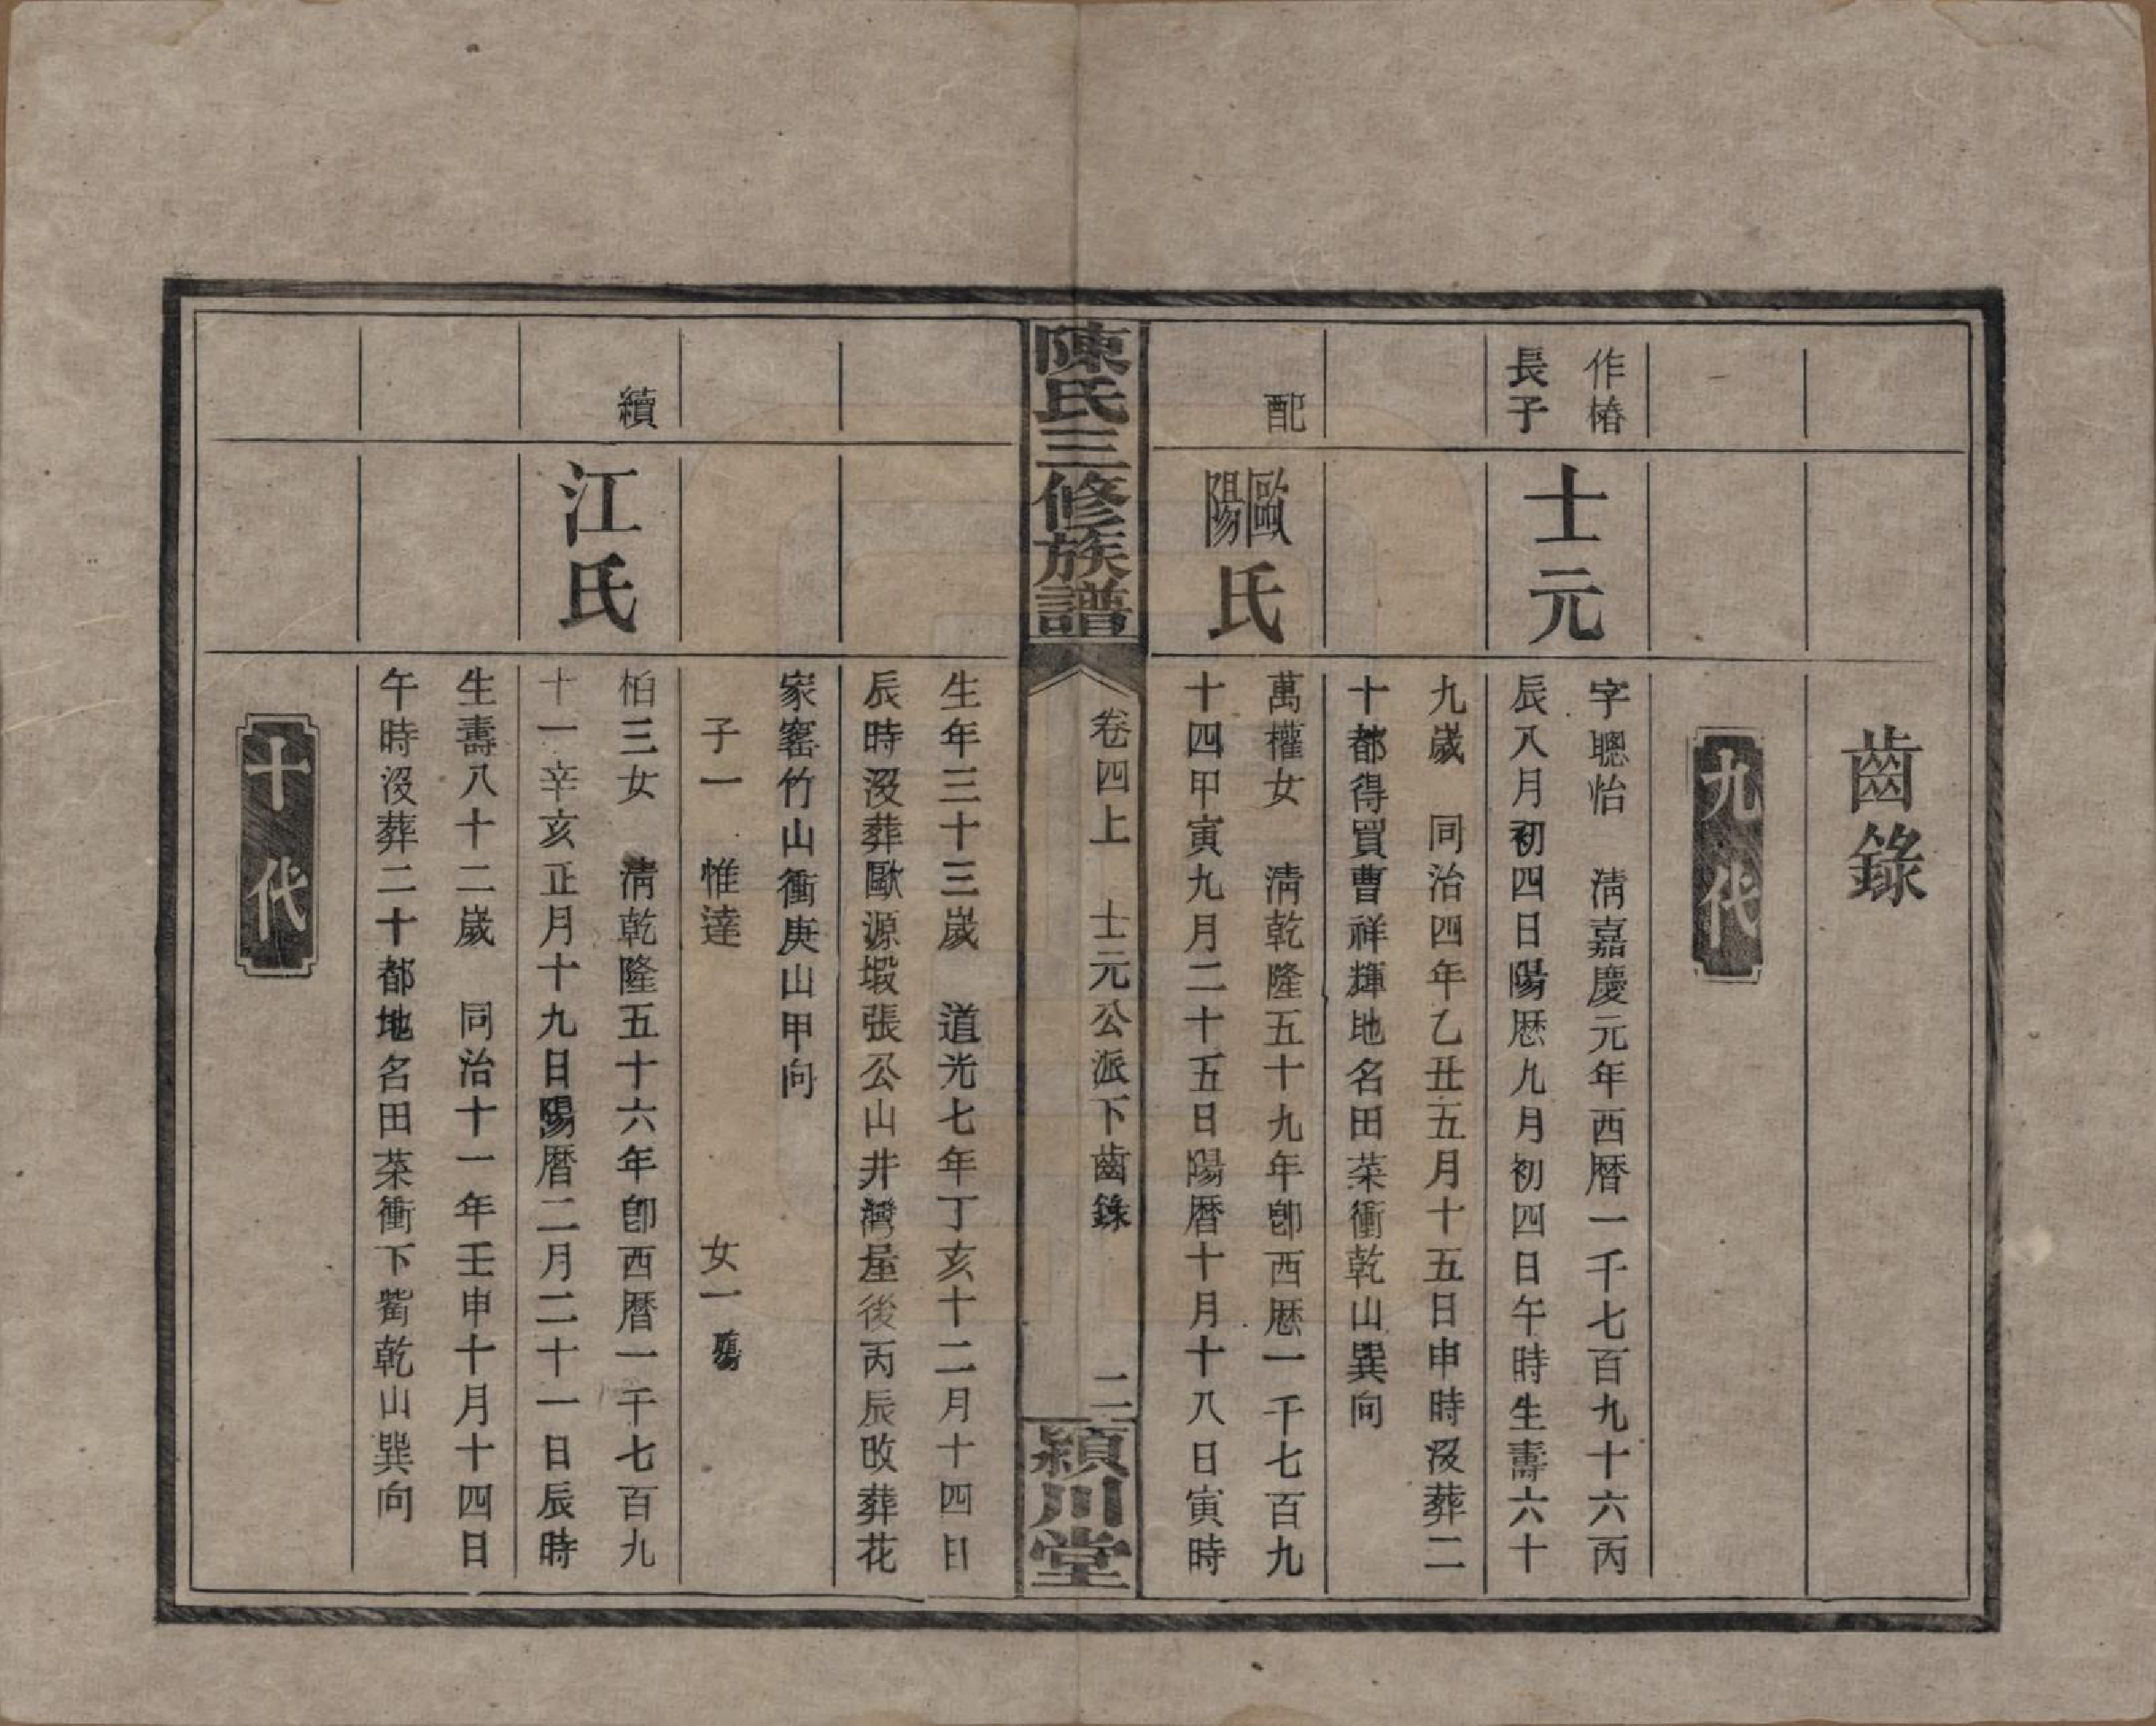 齒錄
九代
作椿
長子
士元
字聰怡　淸嘉慶元年西曆一千七百九十六丙
辰八月初四日陽歷九月初四日午時生壽六十
九歲　同治四年乙丑五月十五日申時沒葬二
十都得買曹祥輝地名田菜衝乾山巽向
配
歐陽氏
萬權女　淸乾隆五十九年卽西歷一千七百九
十四甲寅九月二十五日陽曆十月十八日寅時
陳氏三修族譜
卷四上　士元公派下齒錄
二
潁川堂
生年三十三歲　道光七年丁亥十二月十四日
辰時沒葬歐源塅張公山井灣屋後丙辰改葬花
家窰竹山衝庚山甲向
子一　惟達　女一殤
續
江氏
柏三女　淸乾隆五十六年卽西曆一千七百九
十一辛亥正月十九日陽曆二月二十一日辰時
生壽八十二歲　同治十一年壬申十月十四日
午時沒葬二十都地名田菜衝下觜乾山巽向
十代